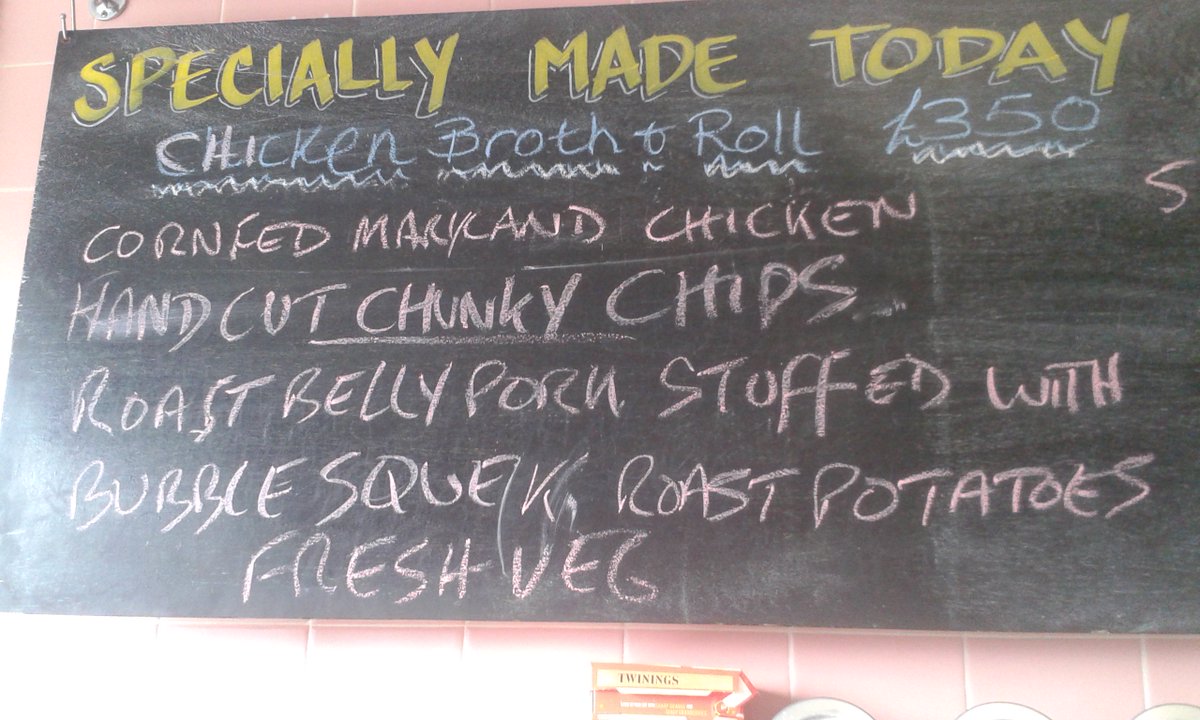 SPECIALLY MADE TODAY
CHICKEN Broth & Roll £350
CORNFED MARYLAND CHICKEN
HANDCUT CHUNKY CHIPS
ROAST BELLY PORK STUFFED WITH
BUBBLE SQUEK ROAST POTATOES
FRESH VEG
TWININGS